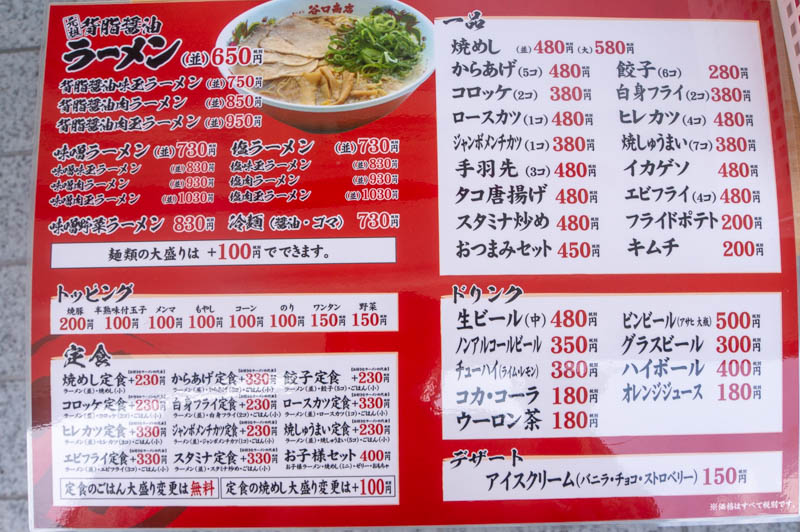 元祖 背脂醤油
ラーメン (並)650円 税別
谷口商店
背脂醤油味玉ラーメン (並)750円
背脂醤油肉ラーメン (並)850円
背脂醤油肉玉ラーメン (並)950円
味噌ラーメン (並)730円 塩ラーメン (並)730円
味噌味玉ラーメン (並)830円 塩味玉ラーメン (並)830円
味噌肉ラーメン (並)930円 塩肉ラーメン (並)930円
味噌肉玉ラーメン (並)1030円 塩肉玉ラーメン (並)1030円
味噌野菜ラーメン 830円 冷麺(醤油・ゴマ) 730円
麺類の大盛りは +100円 税別 でできます。
トッピング
焼豚 200円
半熟味付玉子 100円
メンマ 100円
もやし 100円
コーン 100円
のり 100円
ワンタン 150円
野菜 150円
定食
焼めし定食 +230円 からあげ定食 +330円 餃子定食 +230円
ラーメン(並)・焼めし(小) ラーメン(並)・からあげ(3コ)・ごはん(小) ラーメン(並)・餃子(6コ)・ごはん(小)
コロッケ定食 +230円 白身フライ定食 +230円 ロースカツ定食 +330円
ラーメン(並)・コロッケ(2コ)・ごはん(小) ラーメン(並)・白身フライ(2コ)・ごはん(小) ラーメン(並)・ロースカツ(1コ)・ごはん(小)
ヒレカツ定食 +330円 ジャンボメンチカツ定食 +230円 焼しゅうまい定食 +230円
ラーメン(並)・ジャンボメンチカツ(1コ)・ごはん(小)
エビフライ定食 +330円 スタミナ定食 +330円 お子様セット 400円
ラーメン(並)・スタミナ炒め・ごはん(小) お子様ラーメン・焼めし(ミニ)・ゼリー・おもちゃ
定食のごはん大盛り変更は無料 定食の焼めし大盛り変更は+100円
一品
焼めし (並)480円 (大)580円
からあげ(5コ) 480円 餃子(6コ) 280円
コロッケ(2コ) 380円 白身フライ(2コ) 380円
ロースカツ(1コ) 480円 ヒレカツ(4コ) 480円
ジャンボメンチカツ(1コ) 380円 焼しゅうまい(7コ) 380円
手羽先(3コ) 480円 イカゲソ 480円
タコ唐揚げ 480円 エビフライ(4コ) 480円
スタミナ炒め 480円 フライドポテト 200円
おつまみセット 450円 キムチ 200円
ドリンク
生ビール(中) 480円 ビンビール(アサヒ 大瓶) 500円
ノンアルコールビール 350円 グラスビール 300円
チューハイ(ライム・レモン) 380円 ハイボール 400円
コカ・コーラ 180円 オレンジジュース 180円
ウーロン茶 180円
デザート
アイスクリーム(バニラ・チョコ・ストロベリー) 150円
※価格はすべて税別です。